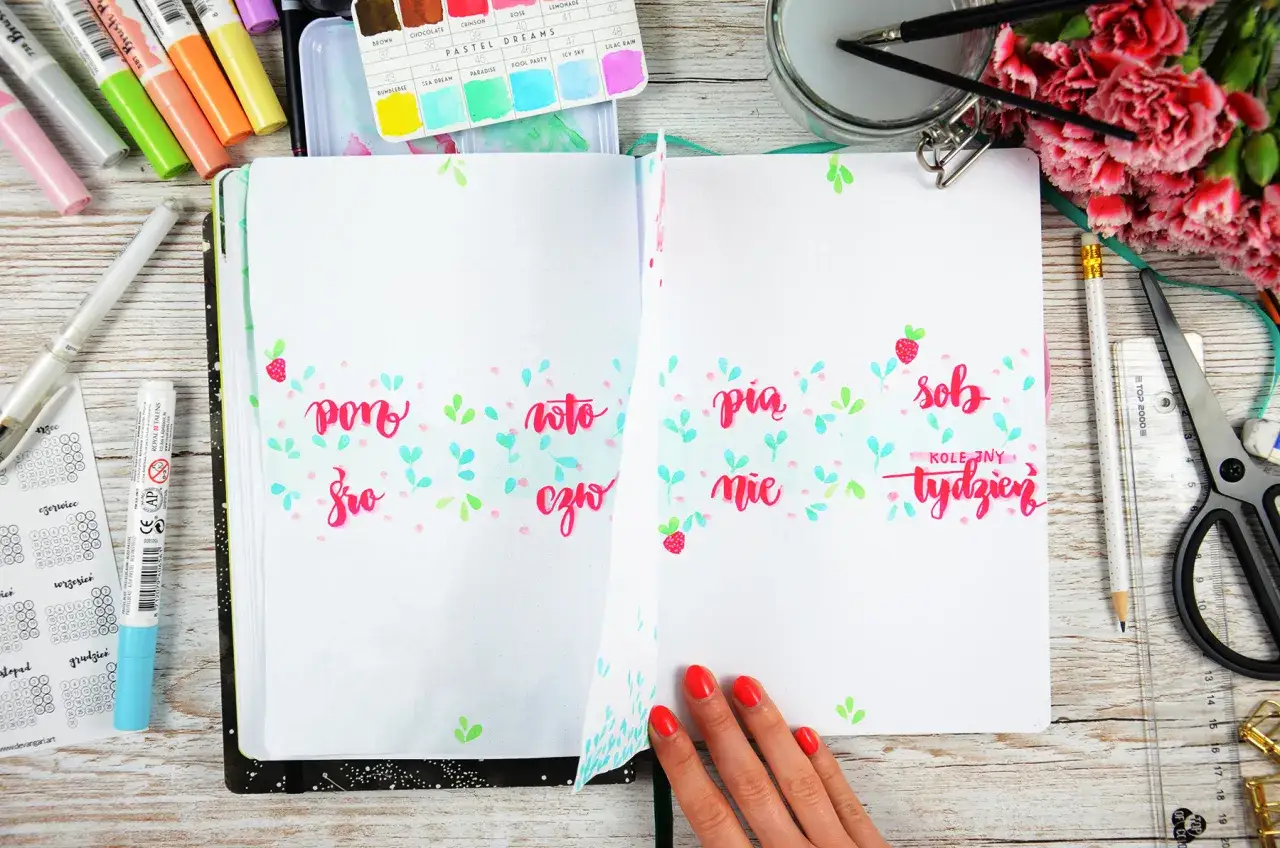 BROWN CHOCOLATE CRIMSON ROSE LEMONADE
PASTEL DREAMS
BUMBLEBEE SEA DREAM PARADISE POOL PARTY ICY SKY LILAC RAIN
pon wto
śro czw
pią sob
nie
KOLEJNY
tydzień
czerwiec
wrzesień
grudzień
www.devangari.art
TOP 2000
AP
CE